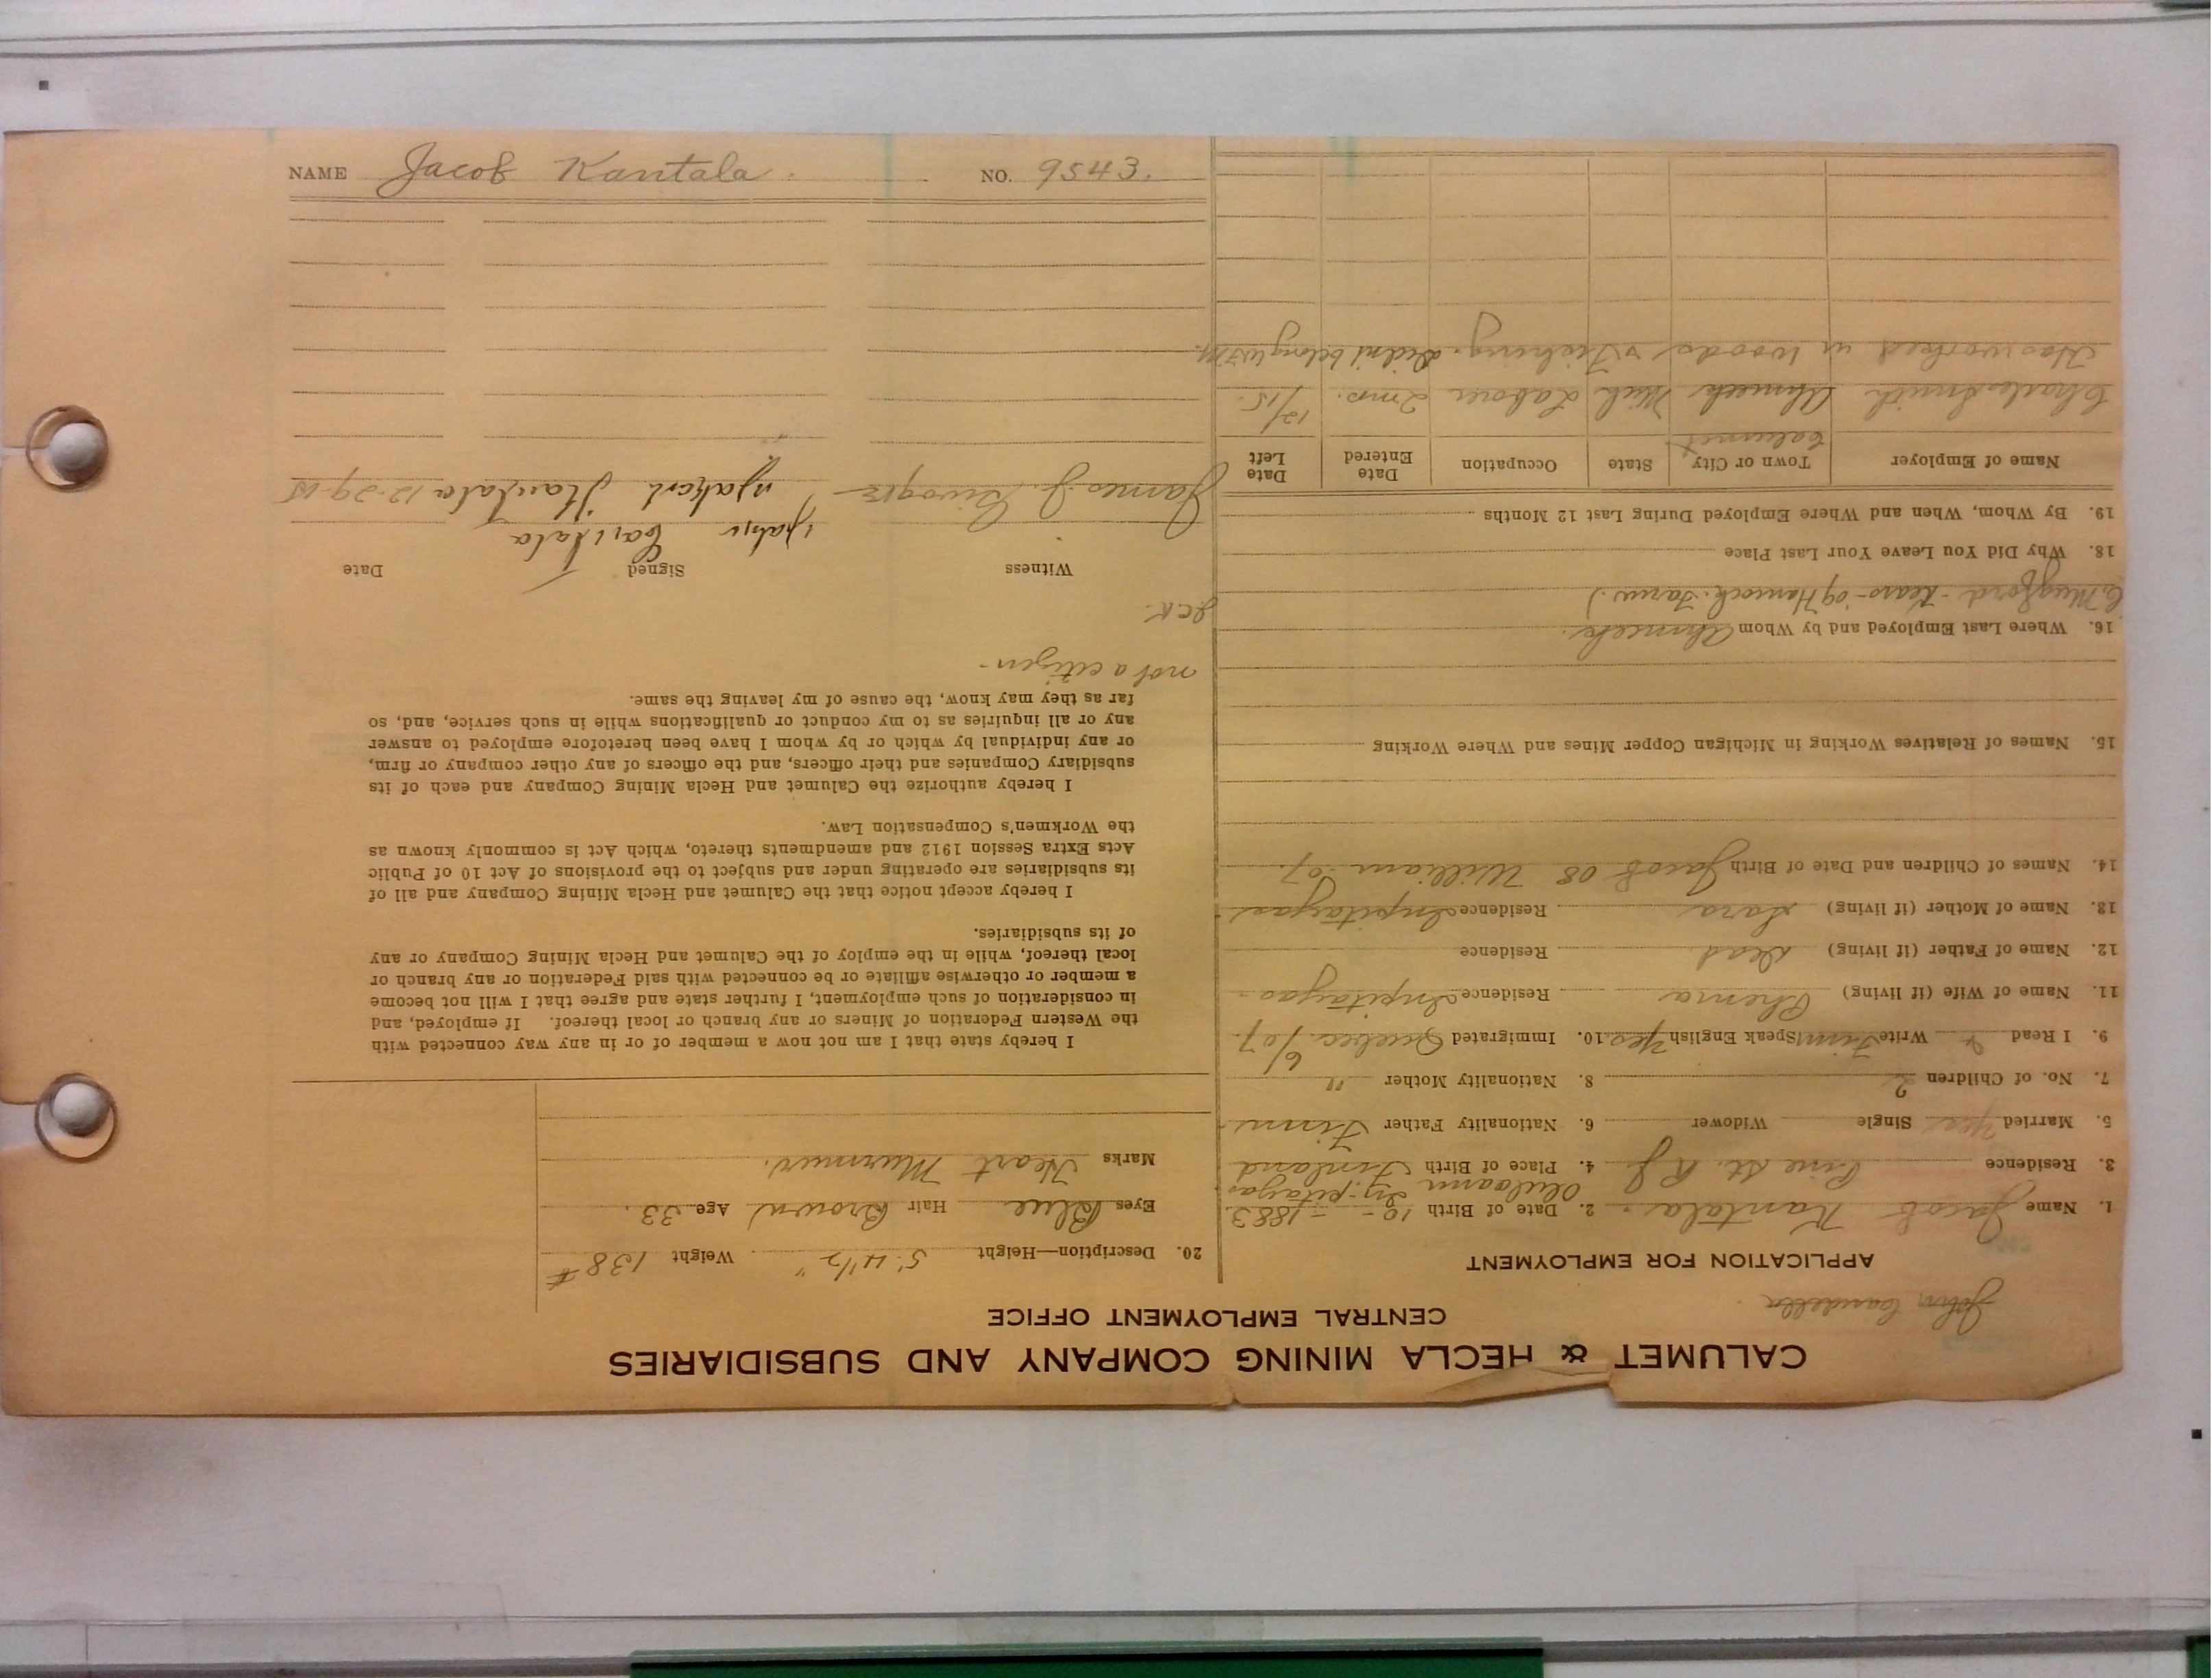 NAME Jacob Kantala. NO. 9543.
CALUMET & HECLA MINING COMPANY AND SUBSIDIARIES
CENTRAL EMPLOYMENT OFFICE
John
APPLICATION FOR EMPLOYMENT
1. Name Jacob Kantala. 2. Date of Birth 10 - - 1883
3. Residence Pine St. R J 4. Place of Birth Finland
5. Married Yes Single Widower 6. Nationality Father Finn
7. No. of Children 2 8. Nationality Mother "
9. I Read & Write Finn Speak English Yes 10. Immigrated Quebec 6/07.
11. Name of Wife (if living) Residence
12. Name of Father (if living) Dead. Residence
13. Name of Mother (if living) Sara Residence
14. Names of Children and Date of Birth Jacob 08 William -07.
15. Names of Relatives Working in Michigan Copper Mines and Where Working
16. Where Last Employed and by Whom Ahmeek.
18. Why Did You Leave Your Last Place
19. By Whom, When and Where Employed During Last 12 Months
Name of Employer Town or City State Occupation Date Entered Date Left
Calumet
Charles Smith Ahmeek Mich Labour 2 mos. 12/15.
Has worked in woods & Fishing. Didn't belong W.F.M.
20. Description—Height 5' 4 1/2" Weight 138 #
Eyes Blue Hair Brown Age 33.
Marks Heart Murmur.
I hereby state that I am not now a member of or in any way connected with
the Western Federation of Miners or any branch or local thereof. If employed, and
in consideration of such employment, I further state and agree that I will not become
a member or otherwise affiliate or be connected with said Federation or any branch or
local thereof, while in the employ of the Calumet and Hecla Mining Company or any
of its subsidiaries.
I hereby accept notice that the Calumet and Hecla Mining Company and all of
its subsidiaries are operating under and subject to the provisions of Act 10 of Public
Acts Extra Session 1912 and amendments thereto, which Act is commonly known as
the Workmen's Compensation Law.
I hereby authorize the Calumet and Hecla Mining Company and each of its
subsidiary Companies and their officers, and the officers of any other company or firm,
or any individual by which or by whom I have been heretofore employed to answer
any or all inquiries as to my conduct or qualifications while in such service, and, so
far as they may know, the cause of my leaving the same.
not a citizen-
J.C.K.
Witness Signed Date
James J. 12-29-15